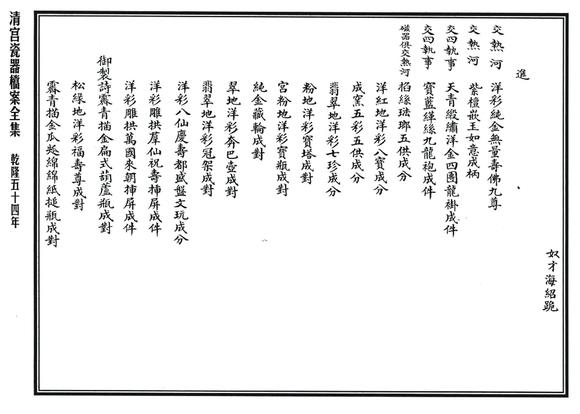 奴才海紹跪
進
交熱河 洋彩純金無量壽佛九尊
交熱河 紫檀嵌玉如意成柄
交四執事 天青緞繡洋金四團龍褂成件
交四執事 寶藍緙絲九龍袍成件
磁器俱交熱河 掐絲琺瑯五供成分
洋紅地洋彩八寶成分
成窯五彩五供成分
翡翠地洋彩七珍成分
粉地洋彩寶塔成對
宮粉地洋彩寶瓶成對
純金藏輪成對
翠地洋彩奔巴壺成對
翡翠地洋彩冠架成對
洋彩八仙慶壽都盛盤文玩成分
洋彩雕拱羣仙祝壽插屏成件
洋彩雕拱萬國來朝插屏成件
御製詩霽青描金扁式葫蘆瓶成對
松綠地洋彩福壽尊成對
霽青描金瓜瓞綿綿紙搥瓶成對
清宮瓷器檔案全集 乾隆五十四年